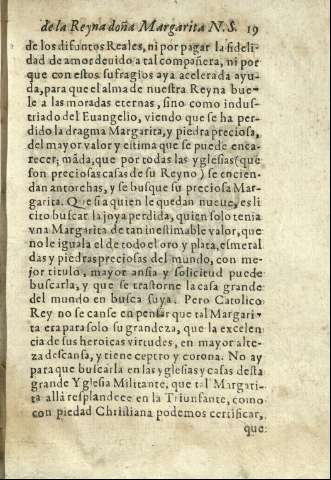 de la Reyna doña Margarita N.S. 19
de los difuntos Reales, ni por pagar la fideli-
dad de amor deuido a tal compañera, ni por
que con estos sufragios aya acelerada ayu-
da, para que el alma de nuestra Reyna bue-
le a las moradas eternas, sino como indus-
triado del Euangelio, viendo que se ha per-
dido la dragma Margarita, y piedra preciosa,
del mayor valor y estima que se puede enca-
recer; mãda, que por todas las yglesias (que
son preciosas casas de su Reyno) se encien-
dan antorchas, y se busque su preciosa Mar-
garita. Que si a quien le quedan nueue, es li
cito buscar la joya perdida, quien solo tenia
vna Margarita de tan inestimable valor, que
no le iguala el de todo el oro y plata, esmeral
das y piedras preciosas del mundo, con me-
jor titulo, mayor ansia y solicitud puede
buscarla, y que se trastorne la casa grande
del mundo en busca suya. Pero Catolico
Rey no se canse en pensar que tal Margari-
ta era para solo su grandeza, que la excelen-
cia de sus heroicas virtudes, en mayor alte-
za descansa, y tiene ceptro y corona. No ay
para que buscarla en las yglesias y casas desta
grande Yglesia Militante, que tal Margari-
ta allà resplandece en la Triunfante, como
con piedad Christiana podemos certificar,
que